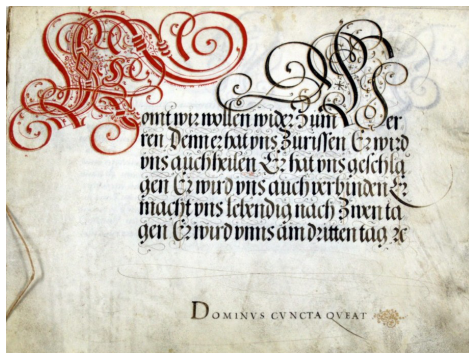 Komt wir wollen wider Zum Her
ren Denn er hat vns Zurissen Er wird
vns auch heilen Er hat vns geschla
gen Er wird vns auch verbinden Er
macht vns lebendig nach Zwen ta
gen Er wird vnns am dritten tag ⁊c
DOMINVS CVNCTA QVEAT